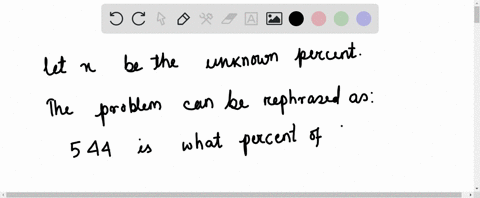 let x be the unknown percent.
The problem can be rephrased as:
544 is what percent of